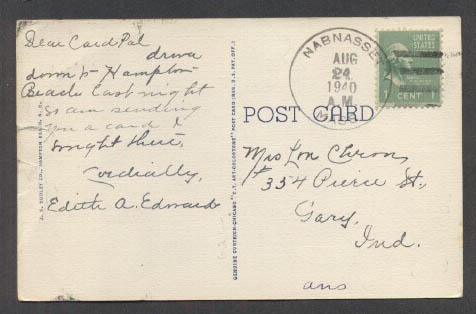 Dear Card Pal
drove
down to Hampton
Beach last night
so am sending
you a card I
bought there.
Cordially,
Edith A. Edwards
POST CARD
NABNASSET
AUG
24
1940
A.M.
MASS.
UNITED
STATES
CENT 1
Mrs Lon
# 354 Pierce St.,
Gary,
Ind.
ans
GENUINE CURTEICH-CHICAGO "C.T. ART-COLORTONE" POST CARD (REG. U.S. PAT. OFF.)